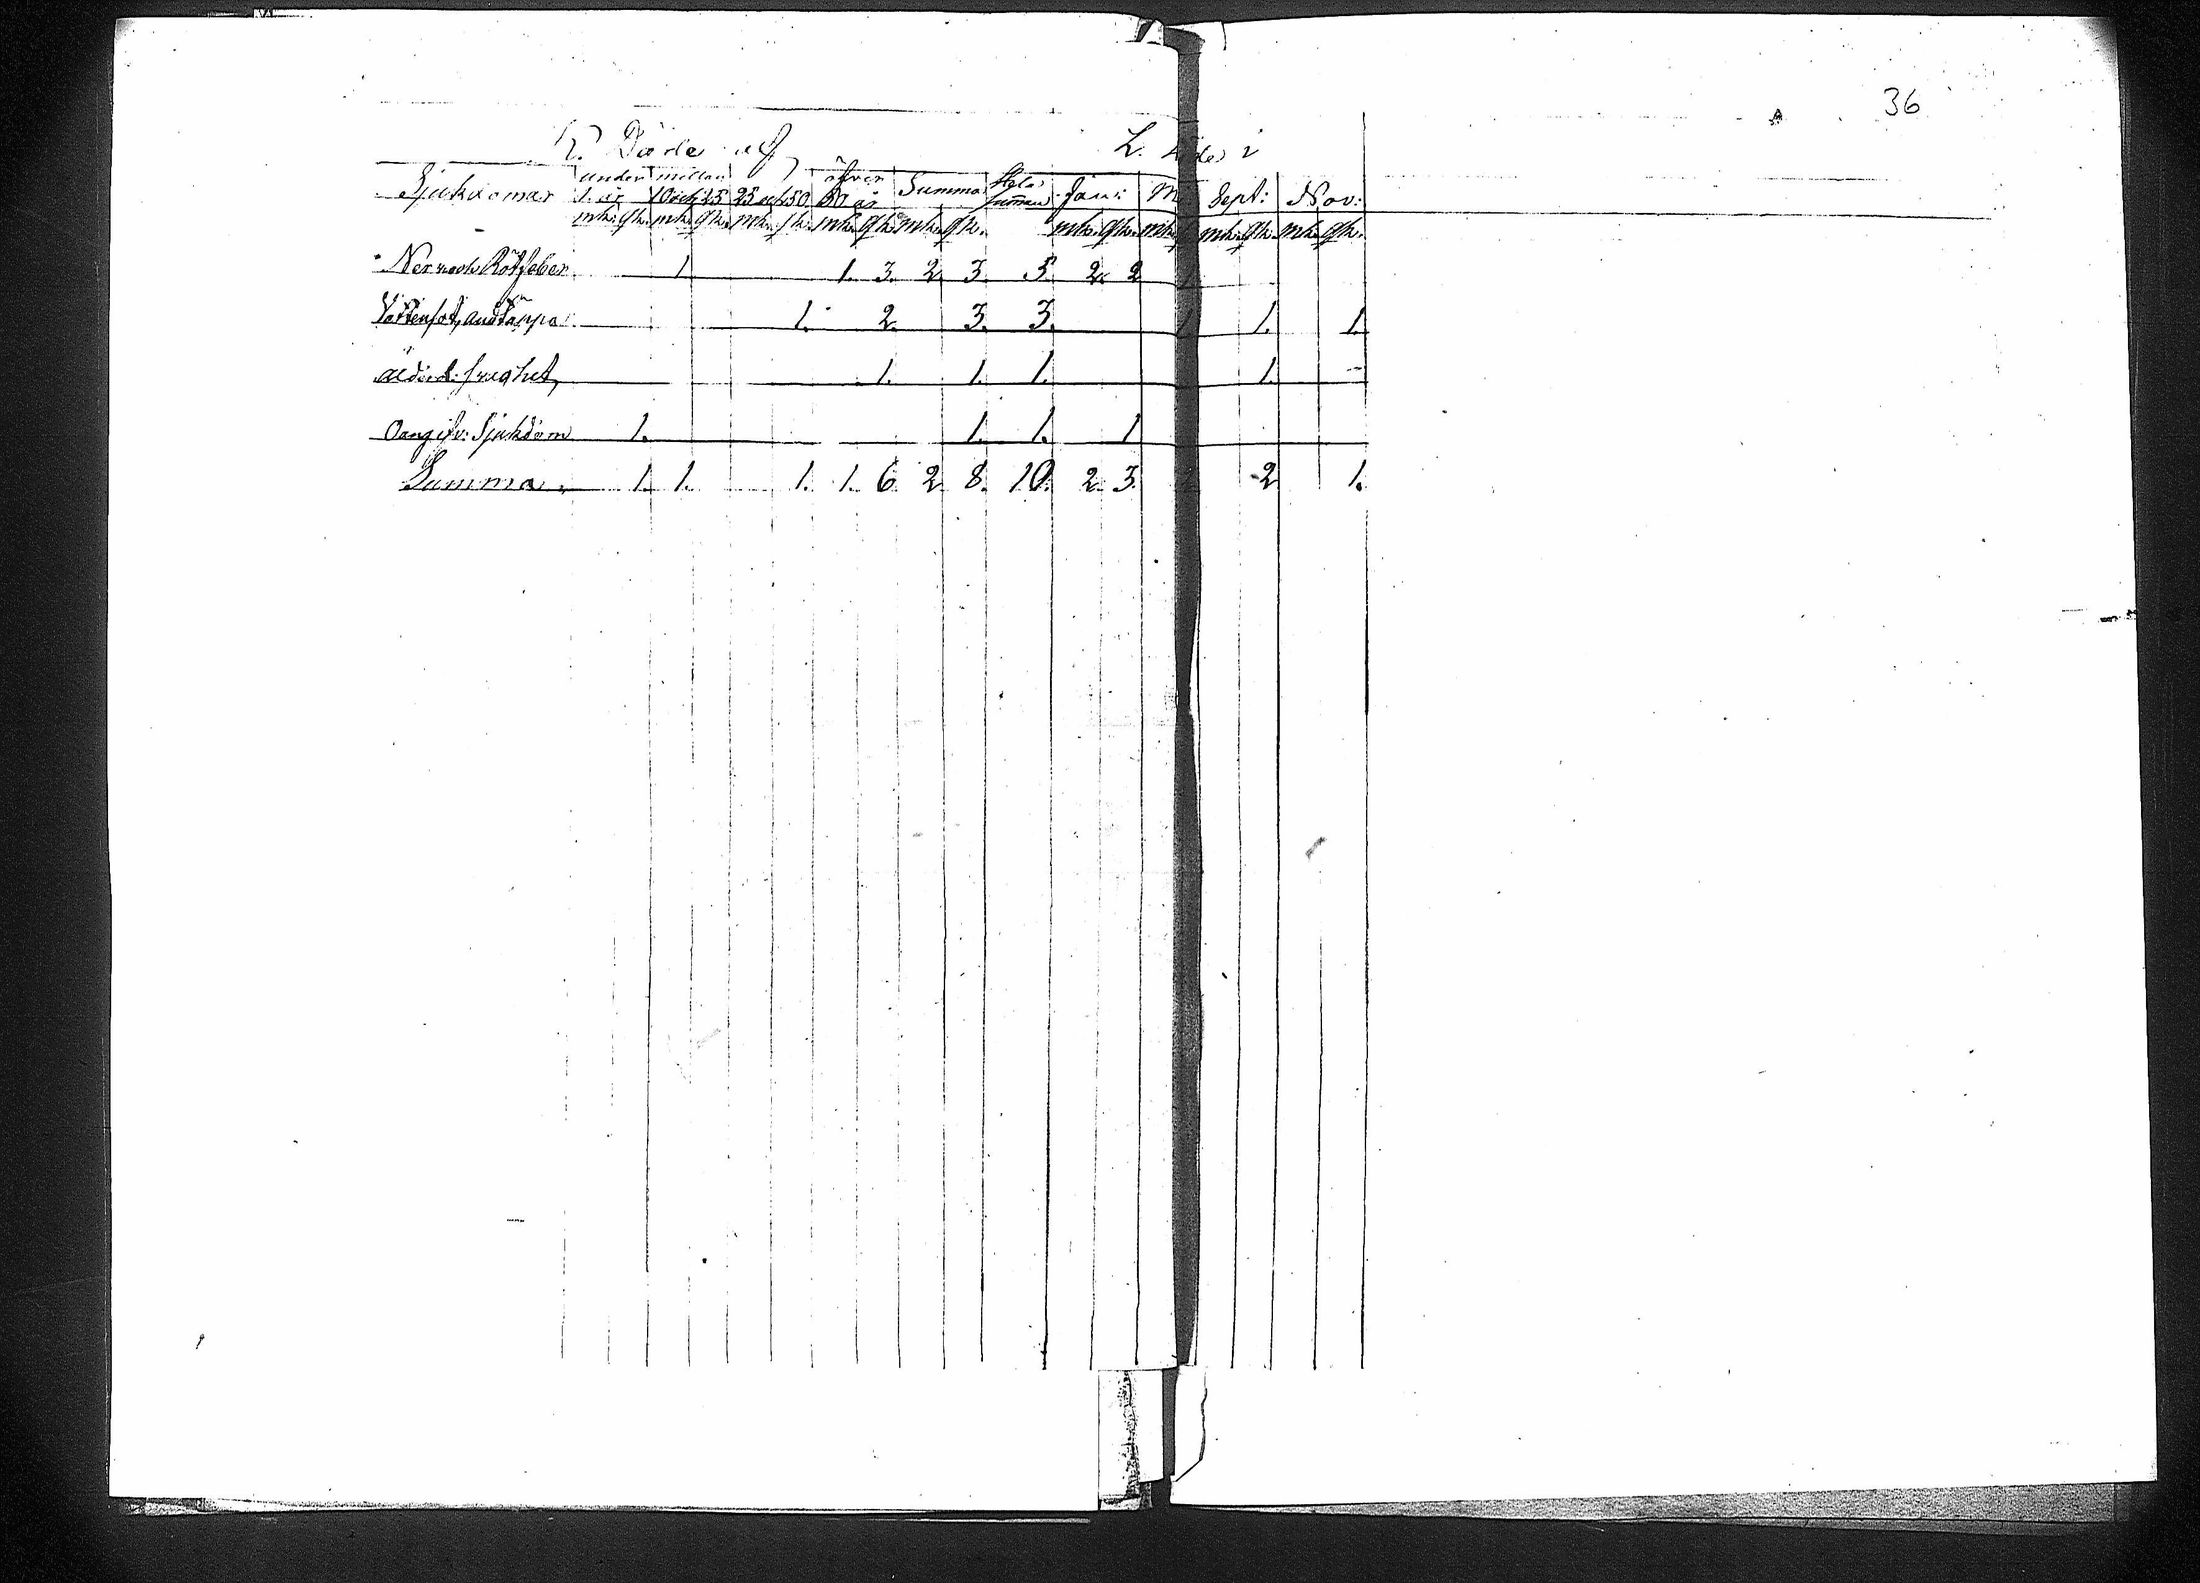 36
K. Döde af L. Döde i
Sjukdomar under 1. år mellan 10 och 25 25 och 50 öfver 50 år Summa Hela summan Jan: M Sept: Nov:
mk. qk. mk. qk. mk. qk. mk. qk. mk. qk. mk. qk. mk. mk. qk. mk. qk.
Nerv och Rötfeber 1 1. 3. 2. 3. 5. 2. 2 1
Vattensot, andtäppa 1. 2. 3. 3. 1 1. 1.
Ålderd. svaghet, 1. 1. 1. 1. -
Oangifv: Sjukdom 1. 1. 1. 1
Summa 1. 1. 1. 1. 6 2 8. 10. 2. 3. 2 2 1.